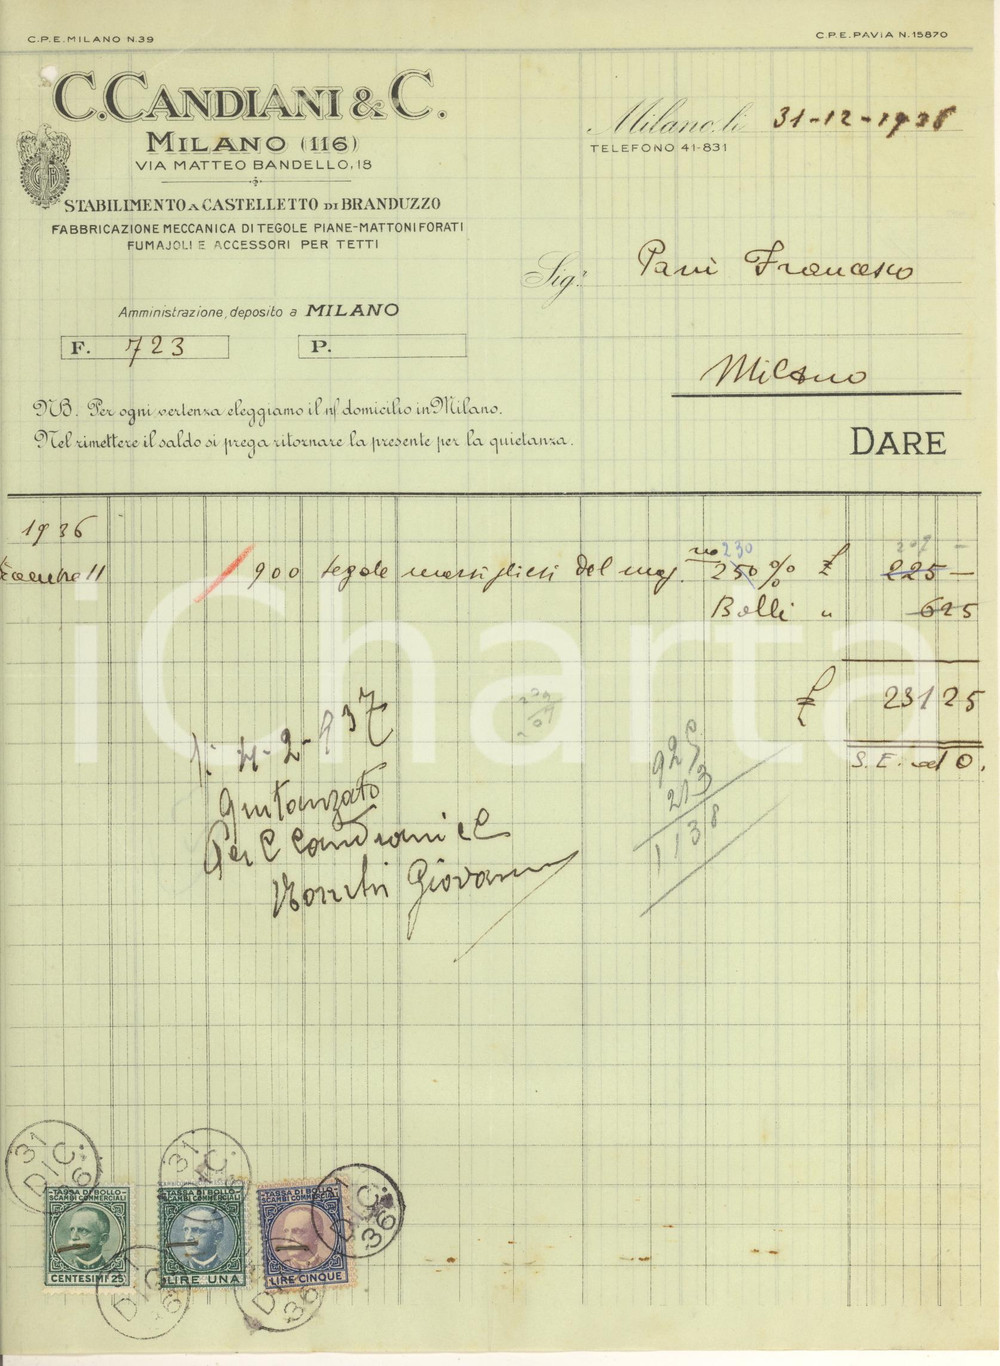 C.P.E. MILANO N.39
C.P.E. PAVIA N.15870
C. CANDIANI & C.
MILANO (116)
VIA MATTEO BANDELLO, 18
STABILIMENTO A CASTELLETTO DI BRANDUZZO
FABBRICAZIONE MECCANICA DI TEGOLE PIANE-MATTONI FORATI
FUMAJOLI E ACCESSORI PER TETTI
Milano, li 31-12-1936
TELEFONO 41-831
Sig. Pavi Francesco
Milano
Amministrazione, deposito a MILANO
F. 723
P.
NB. Per ogni vertenza eleggiamo il n/ domicilio in Milano.
Nel rimettere il saldo si prega ritornare la presente per la quietanza.
DARE
1936
11 900 tegole marsigliesi del mag. 230 250 % £ 207 - 225 -
Bolli " 625
£ 23125
S. E. ed O.
4-2-937
Quitanzato
Per C Candiani e C
Giovanni
925
213
1138
iCharta
31 DIC. 36
31 DIC. 36
31 DIC. 36
31 DIC. 36
31 DIC. 36
TASSA DI BOLLO
SCAMBI COMMERCIALI
CENTESIMI 25
TASSA DI BOLLO
SCAMBI COMMERCIALI
LIRE UNA
TASSA DI BOLLO
SCAMBI COMMERCIALI
LIRE CINQUE